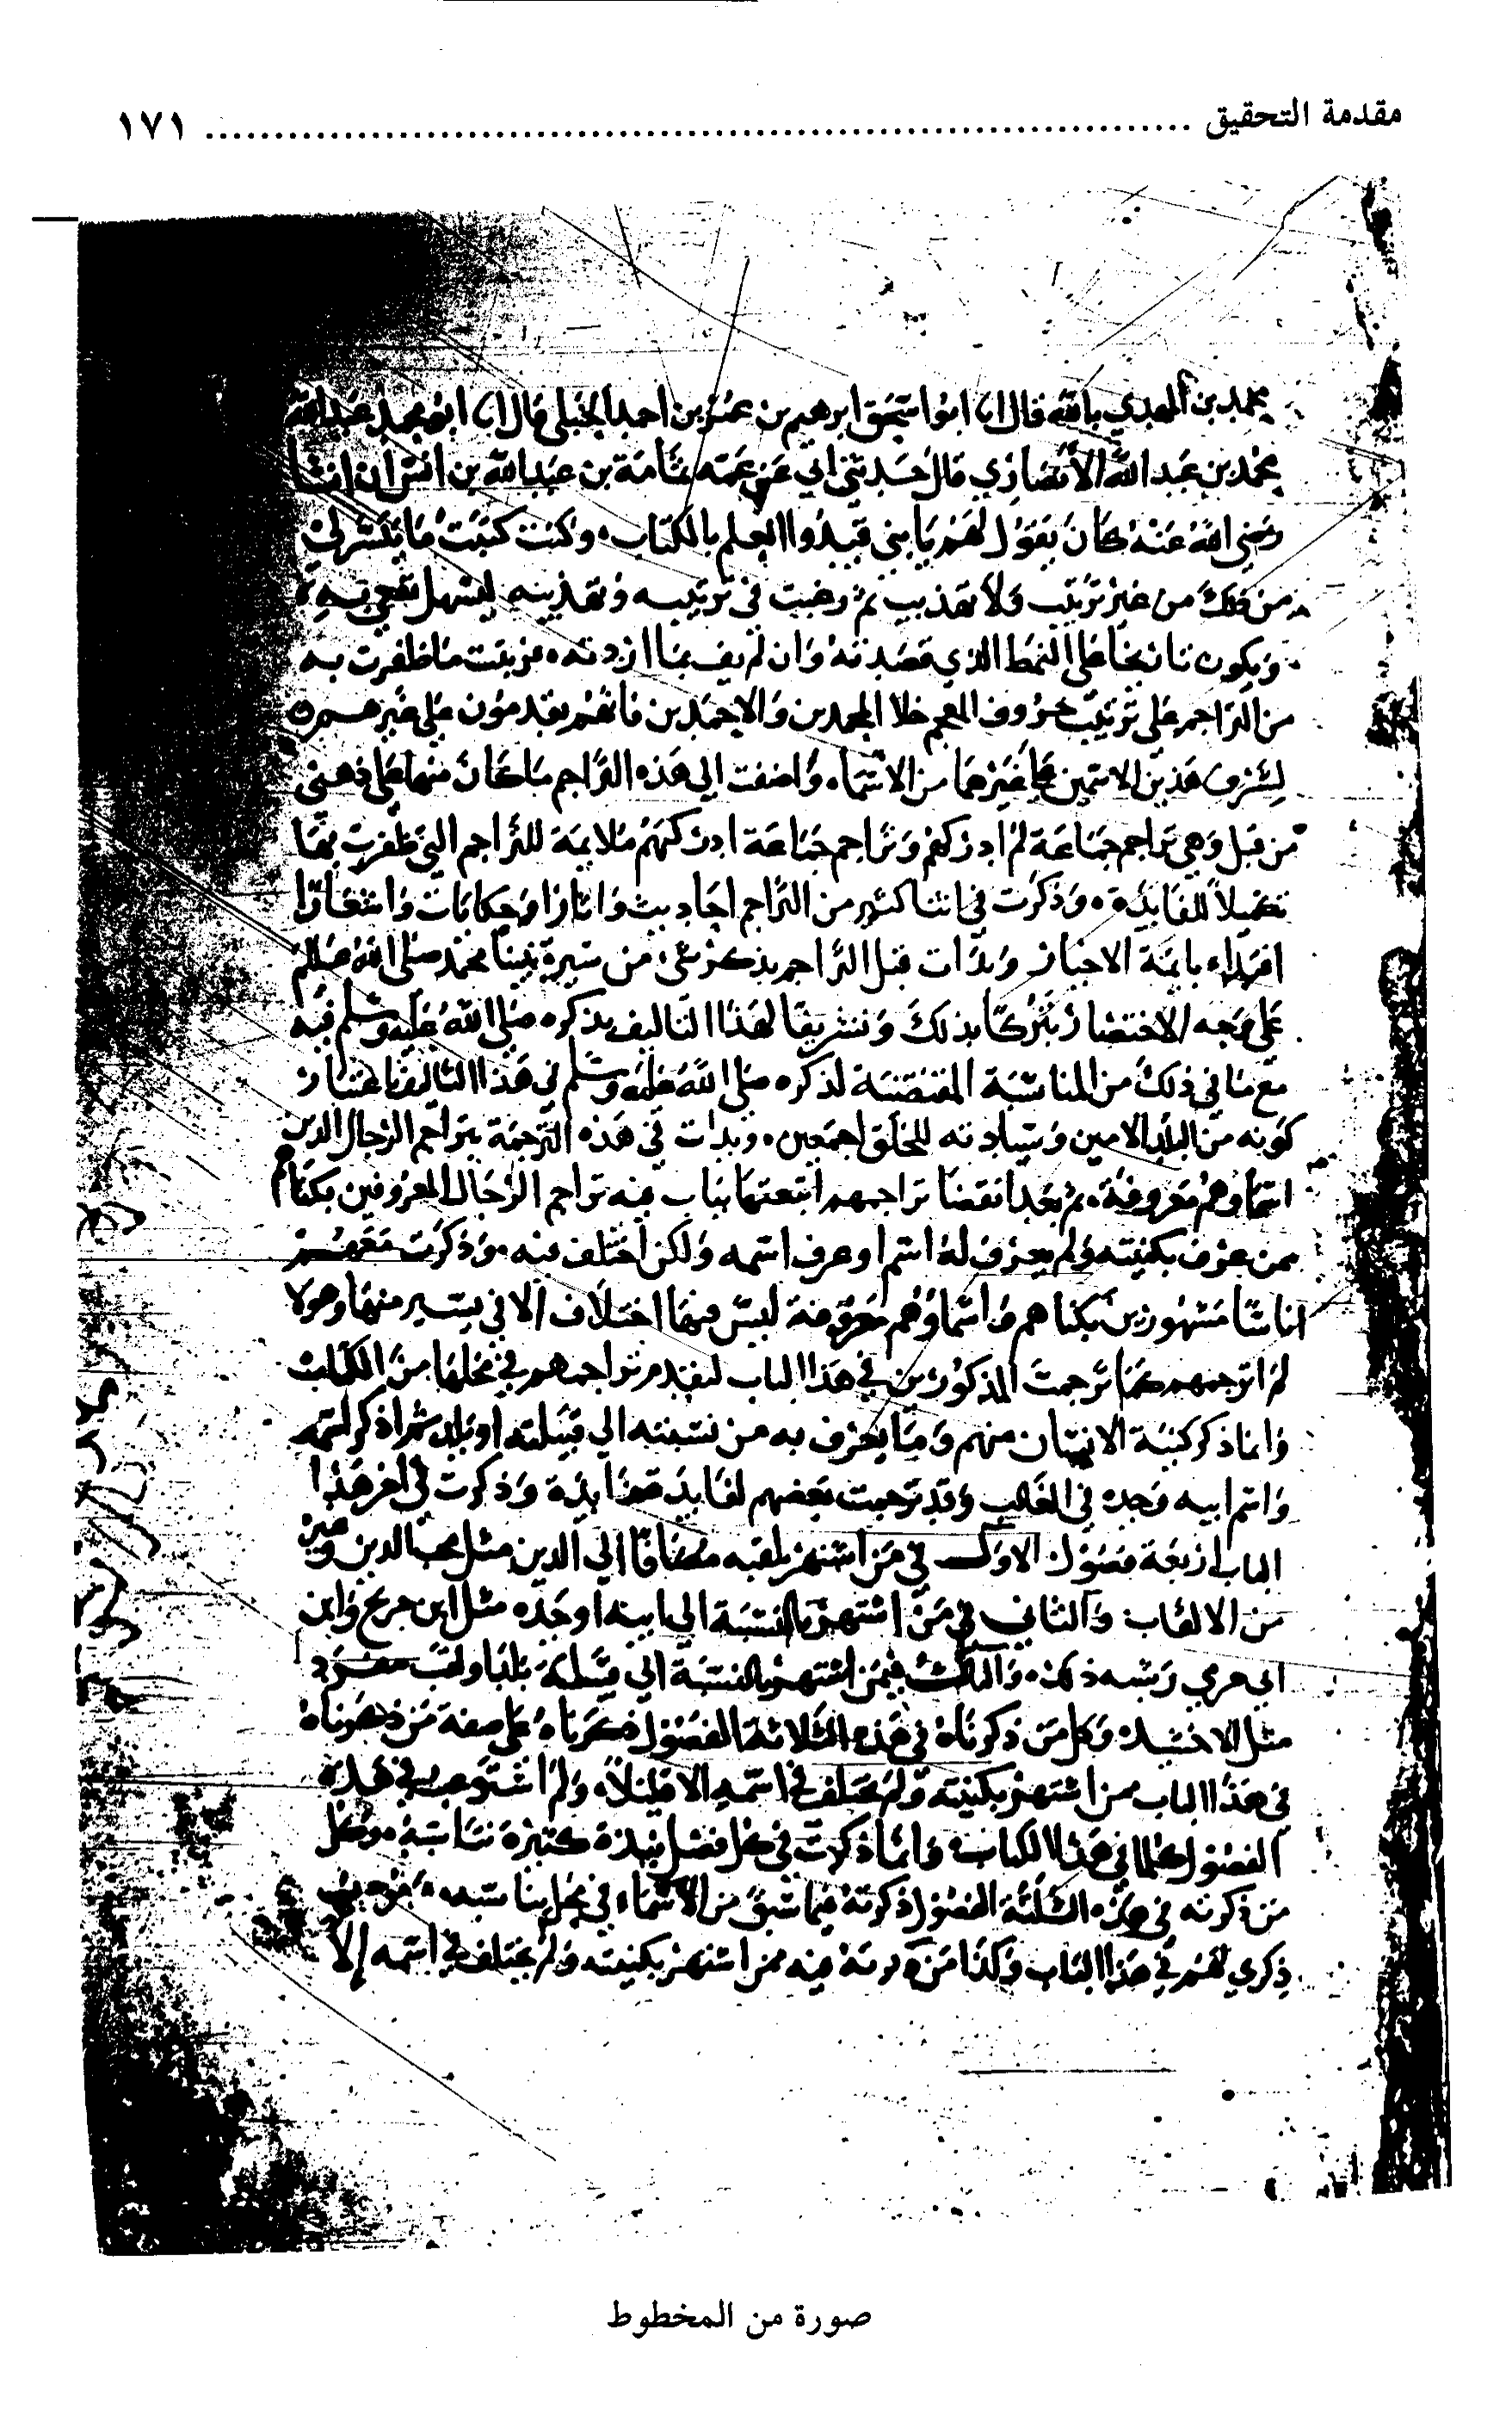 مقدمة التحقيق ........................................ ١٧١
محمد بن المهدي بالله قال انا ابو اسحق ابرهيم بن عمر بن احمد قال انا ابو محمد عبدالله
محمد بن عبد الله الأنصاري قال حدثني ابي عن عمه ثمامة بن عبد الله بن انس ان انسا
رضي الله عنه كان يقول لهم يا بني قيدوا العلم بالكتاب وكنت كتبت ما يتسر لي
من ذلك من غير ترتيب ولا تهذيب ثم رغبت في ترتيبه وتهذيبه ليسهل
ويكون تاريخا على النمط الذي قصدته وان لم يف بما اردته فرتبت ما ظفرت به
من التراجم على ترتيب حروف المعجم خلا المحمدين والاحمدين فانهم يقدمون على غيرهم
لشرف هذين الاسمين على غيرهما من الاسماء واضفت الي هذه التراجم ما كان منها على ذهني
من قبل وهي تراجم جماعة لم ادركهم وتراجم جماعة ادركتهم ملايمة للتراجم التي ظفرت بها
تكميلا للفايدة وذكرت في اثنا كثير من التراجم احاديث واثارا وحكايات واشعارا
اقتداء بايمة الاخبار وبدات قبل التراجم بذكر شيء من سيرة نبينا محمد صلى الله
على وجه الاختصار تبركا بذلك وتشريفا لهذا التاليف بذكره صلى الله عليه وسلم فيه
مع ما في ذلك من المناسبة المقتضية لذكره صلى الله عليه وسلم في هذا التاليف باعتبار
كونه من البلد الامين وسيادته للخلق اجمعين وبدات في هذه الترجمة بتراجم الرجال الذين
اسماوهم معروفة ثم بعد انقضا تراجمهم اتبعتها بباب فيه تراجم الرجال المعروفين بكناهم
ممن عرف بكنيته ولم يعرف له اسم او عرف اسمه ولكن اختلف فيه وذكرت معهم
اناسا مشهورين بكناهم واسماؤهم معروفة ليس فيها اختلاف الا في يسير منها وهولا
لم اترجمهم كما ترجمت المذكورين في هذا الباب لتقدم تراجمهم في محلها من الكتاب
وانما ذكر كنية الانسان منهم وما يعرف به من نسبته الي قبيلته او بلد ثم اذكر اسمه
واسم ابيه وجده في الغالب وقد ترجمت بعضهم لفايدة وذكرت في اخر هذا
الباب اربعة فصول الاول في من اشتهر بلقبه مضافا الي الدين مثل محب الدين
من الالقاب والثاني في من اشتهر بالنسبة الي ابيه او جده مثل ابن جريج وابن
ابي حري وشبه ذلك والثالث فيمن اشتهر بالنسبة الي قبيلة بلد او لقب مفرد
مثل الاخشيد وكل من ذكرناه في هذه الثلاثة الفصول ذكرناه على صفة من ذكرناه
في هذا الباب ممن اشتهر بكنيته ولم يختلف في اسمه الا قليلا ولم استوعب في هذه
الفصول كلما في هذا الكتاب وانما ذكرت في كل فصل نبذة كثيرة تناسبه وكل
من ذكرته في هذه الثلثة الفصول ذكرته فيما سبق من الاسماء في محل يناسبه
ذكري لهم في هذا الباب وكذا من ذكرته فيه ممن اشتهر بكنيته ولم يختلف في اسمه إلا
صورة من المخطوط